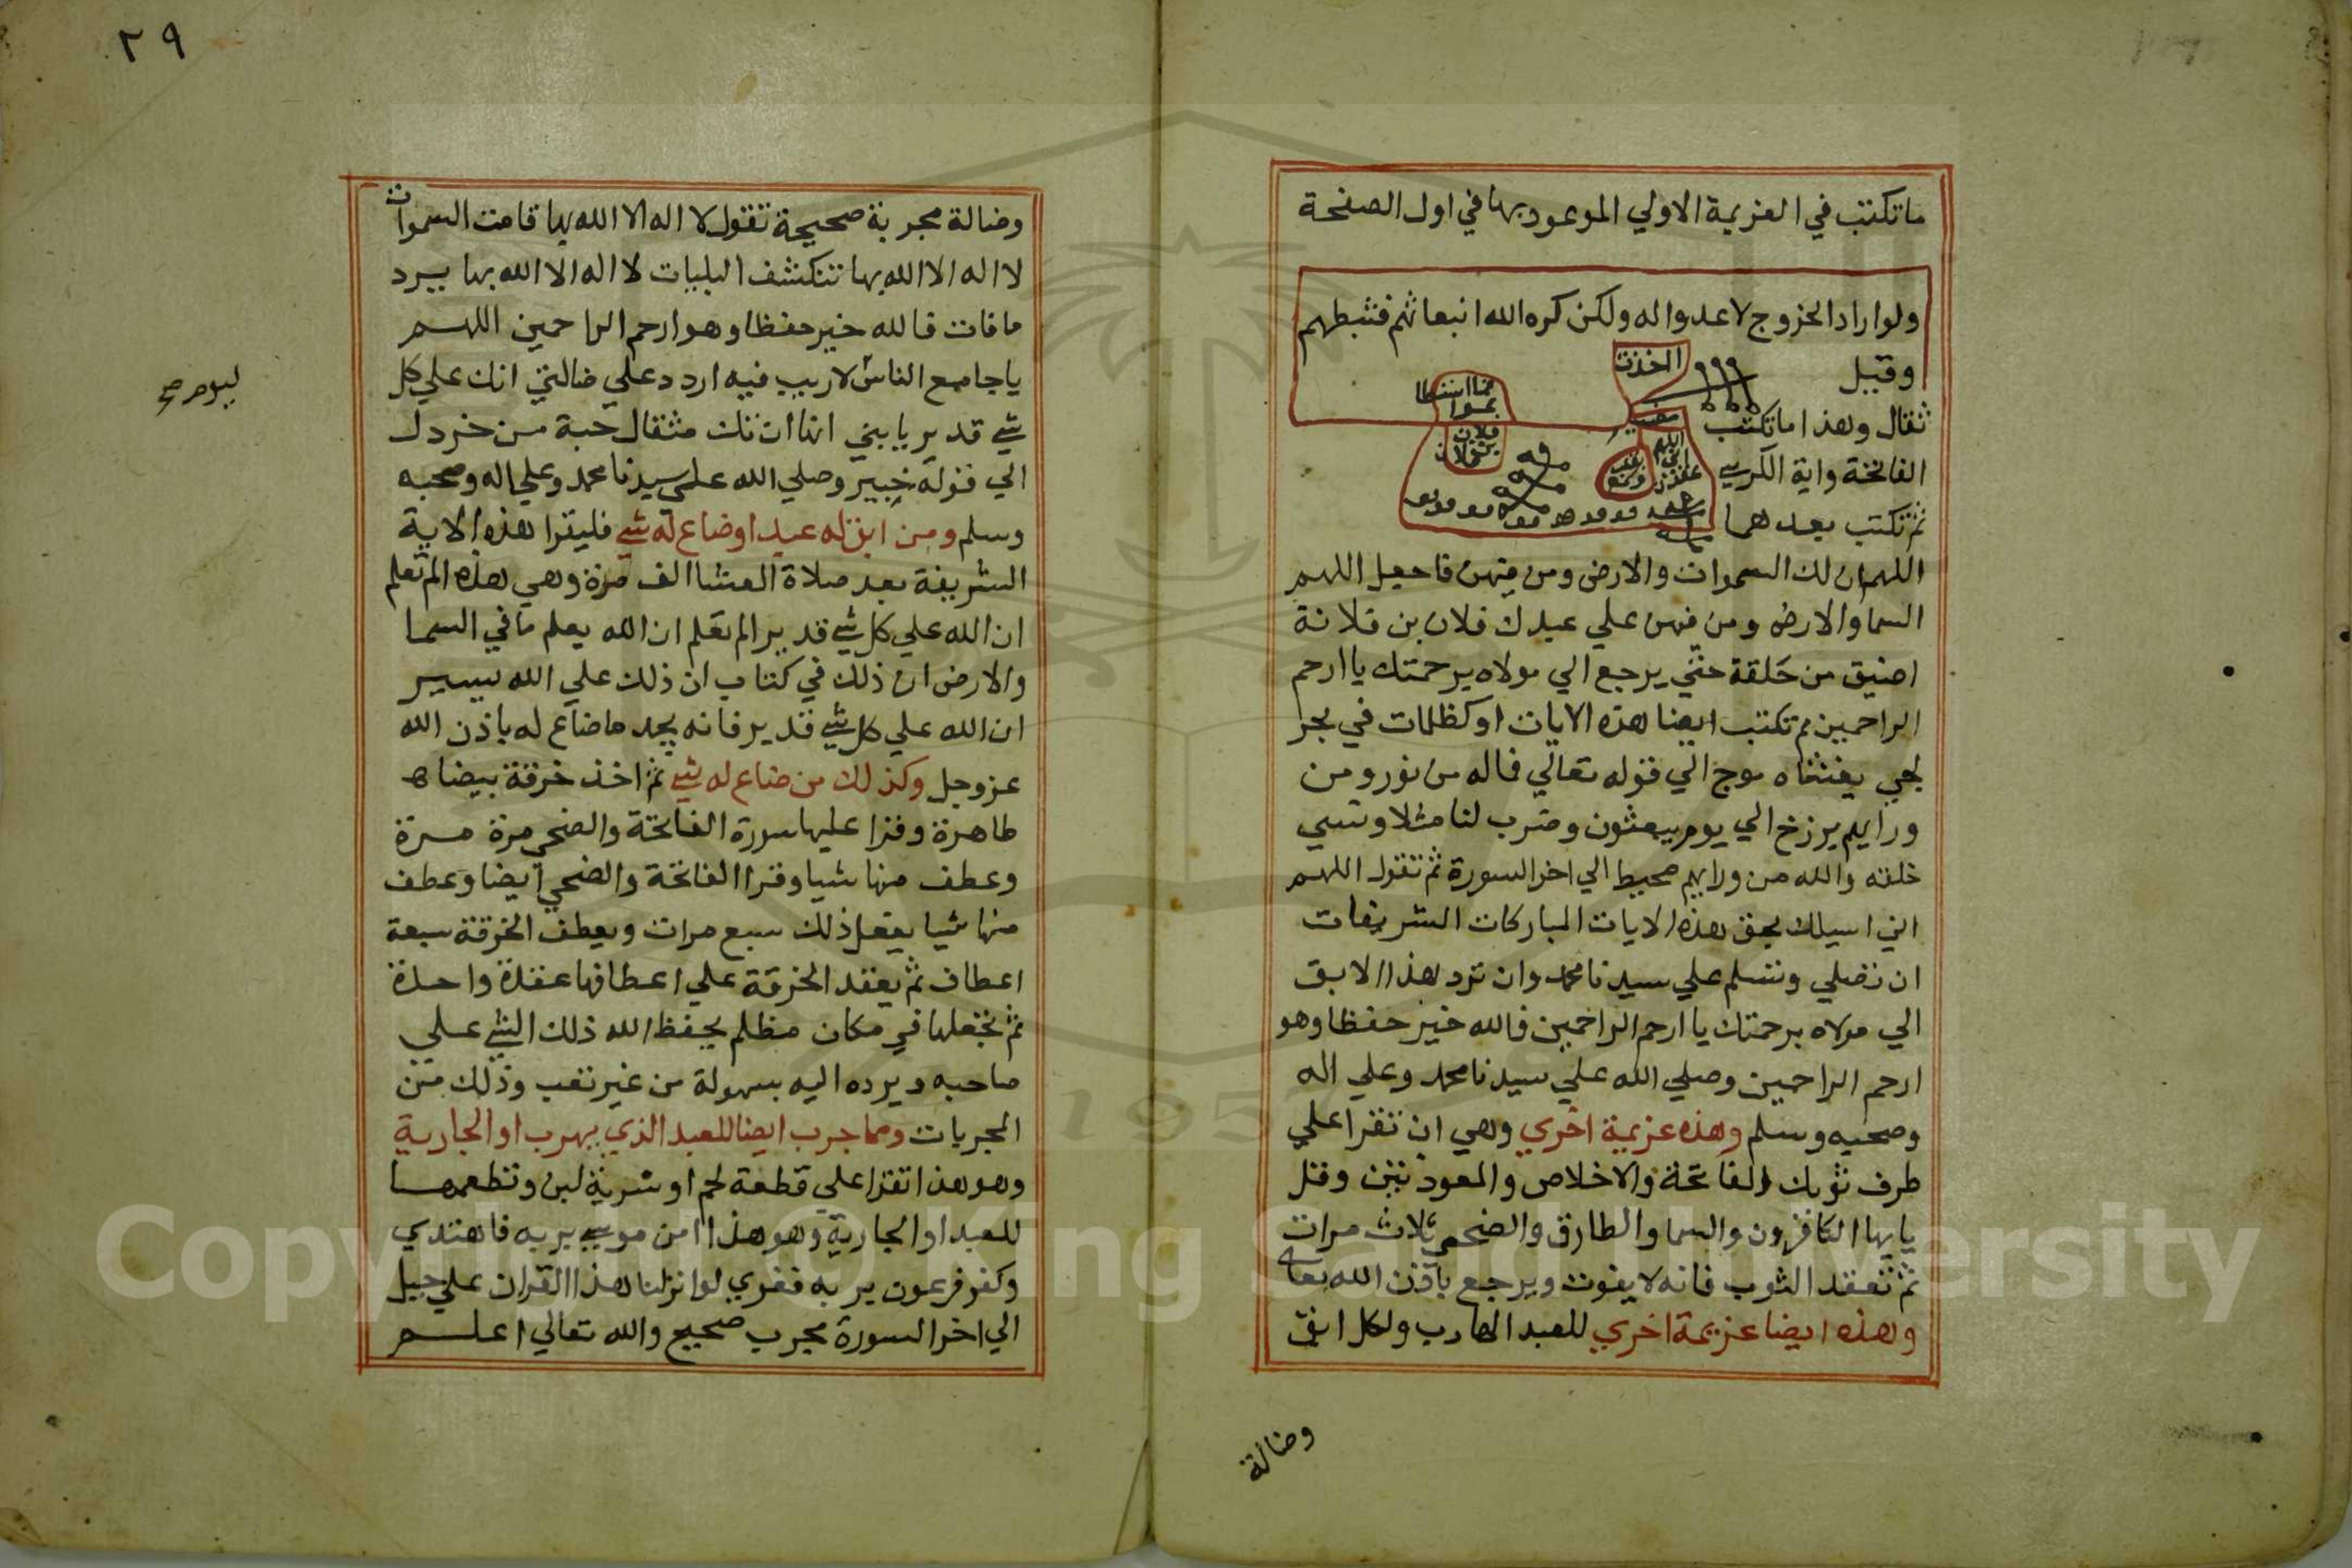 ما تكتب في العزيمة الاولي الموعود بها في اول الصفحة
ولو اراد الخزوج لاعدوا له ولكن كره الله انبعاثهم فثبطهم
وقيل
الخذت
فما اسطا
عوا
ثقال وهذا ما تكتب
فلان
بن فلان
الفاتحة واية الكرسي
ثم تكتب بعدهما
اللهم ان لك السموات والارض ومن فيهن فاجعل اللهم
السما والارض ومن فيهن علي عبدك فلان بن فلانة
اضيق من حلقة حتي يرجع الي مولاه برحمتك يا ارحم
الراحمين ثم تكتب ايضا هذه الايات او كظلمات في بحر
لجي يغشاه موج الي قوله تعالي فاله من نور ومن
ورايهم برزخ الي يوم يبعثون وضرب لنا مثلا ونسي
خلقه والله من ورايهم محيط الي اخر السورة ثم تقول اللهم
اني اسيلك بحق هذه الايات المباركات الشريفات
ان تصلي وتسلم علي سيدنا محمد وان ترد هذا الابق
الي مولاه برحمتك يا ارحم الراحمين فالله خير حفظا وهو
ارحم الراحمين وصلي الله علي سيدنا محمد وعلي اله
وصحبه وسلم وهذه عزيمة اخري وهي ان تقرا علي
طرف ثوبك الفاتحة والاخلاص والمعوذتين وقل
يايها الكافرون والسما والطارق والضحي ثلاث مرات
ثم تعقد الثوب فانه لا يفوت ويرجع باذن الله تعالي
وهذه ايضا عزيمة اخري للعبد الهارب ولكل ابق
وضالة
٢٩
وضالة مجربة صحيحة تقول لا اله الا الله بها قامت السموات
لا اله الا الله بها تنكشف البليات لا اله الا الله بها يرد
ما فات فالله خير حفظا وهو ارحم الراحمين اللهم
يا جامع الناس لا ريب فيه اردد علي ضالتي انك علي كل
ليوم صح
شي قدير يا بني انها ان تك مثقال حبة من خردل
الي قوله خبير وصلي الله علي سيدنا محمد وعلي اله وصحبه
وسلم ومن ابق له عبد او ضاع له شي فليقرا هذه الاية
الشريفة بعد صلاة العشا الف مرة وهي هذه الم تعلم
ان الله علي كل شي قدير الم تعلم ان الله يعلم ما في السما
والارض ان ذلك في كتاب ان ذلك علي الله يسير
ان الله علي كل شي قدير فانه يجد ما ضاع له باذن الله
عز وجل وكذلك من ضاع له شي ثم اخذ خرقة بيضا
طاهرة وقرا عليها سورة الفاتحة والضحي مرة مرة
وعطف منها شيا وقرا الفاتحة والضحي ايضا وعطف
منها شيا يفعل ذلك سبع مرات ويعطف الخرقة سبعة
اعطاف ثم يعقد الخرقة علي اعطافها عقدة واحدة
ثم تجعلها في مكان مظلم يحفظ الله ذلك الشي علي
صاحبه ويرده اليه بسهولة من غير تعب وذلك من
المجربات ومما جرب ايضا للعبد الذي يهرب او الجارية
وهو هذا تقرا علي قطعة لحم او شربة لبن وتطعمها
للعبد او الجارية وهو هذا امن موسي بربه فاهتدي
وكفر فرعون بربه فغوي لو انزلنا هذا القران علي جبل
الي اخر السورة مجرب صحيح والله تعالي اعلم
Copyright © King Saud University
1957